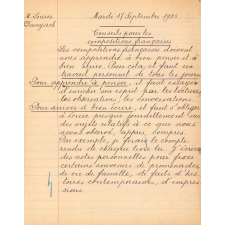 Mardi 17 Septembre 1935
Conseils pour les
compositions françaises
Les compositions françaises doivent
nous apprendre à bien penser et à
bien écrire. Pour cela, il faut un
travail personnel de tous les jours
Pour apprendre à penser, il faut essayer
d'enrichir son esprit par les lectures
les observations, les conversations
Pour arriver à bien écrire, il faut s'obliger
à écrire presque journellement sur
des sujets relatifs à ce que nous
avons observé, appris, compris.
Par exemple, je ferai le compte
rendu de chaque livre lu. J'écrirai
des notes personnelles pour fixer
certains souvenirs de promenades
de vie de famille, de faits d'his
toires contemporaines, d'impres
sions.